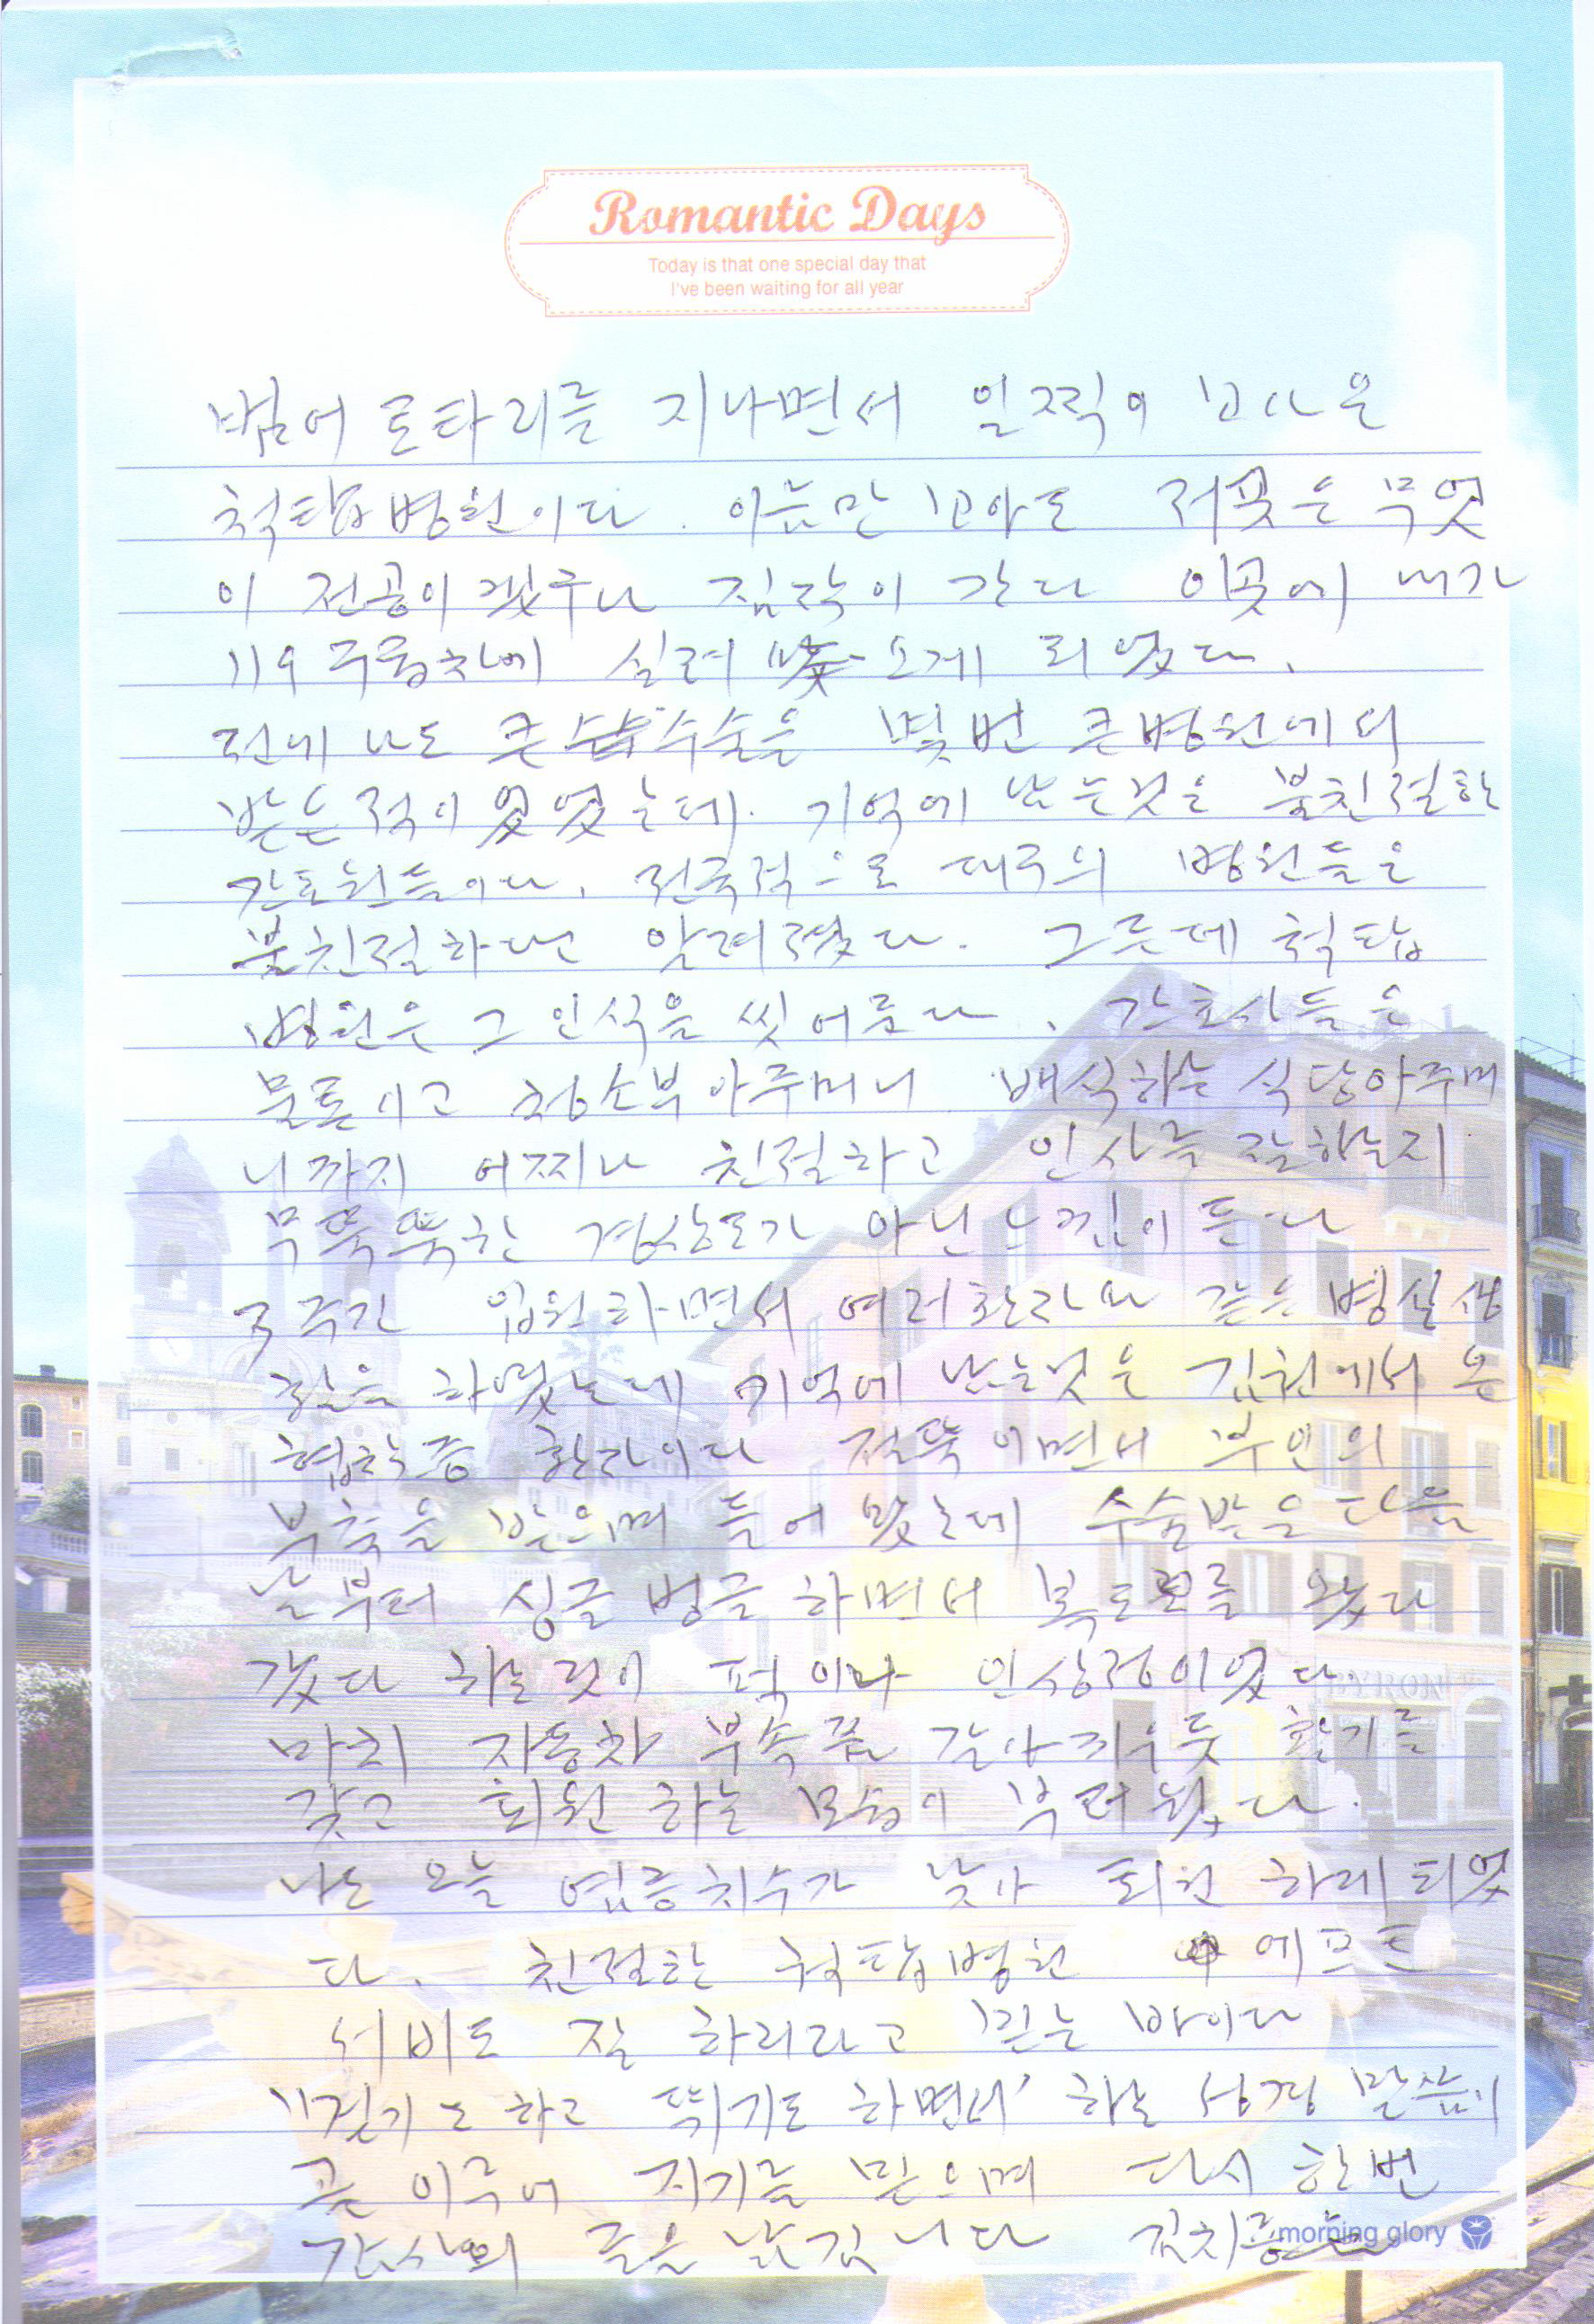 Romantic Days
Today is that one special day that
I've been waiting for all year
범어 로타리를 지나면서 일찍이 보아온
척탑병원이다. 이름만 보아도 저곳은 무엇
이 전공이겠구나 짐작이 간다 이곳에 내가
119 구급차에 실려 오게 되었다.
전에 나도 큰 수술을 몇번 큰병원에서
받은적이 있었는데. 기억에 남는것은 불친절한
간호원들이다. 전국적으로 대구의 병원들은
불친절하다고 알려졌다. 그른데 척탑
병원은 그 인식을 씻어준다. 간호사들은
물론이고 청소부 아주머니 배식하는 식당아주머
니까지 어찌나 친절하고 인사를 잘하는지
무뚝뚝한 경상도가 아닌 느낌이 든다
3주간 입원하면서 여러환자와 같은 병실생
활을 하였는데 기억에 남는것은 김천에서 온
협착증 환자이다 절뚝이면서 부인의
부축을 받으며 들어 왔는데 수술받은 다음
날부터 싱글 벙글 하면서 복도를 왔다
갔다 하는 것이 퍽이나 인상적이었다.
마치 자동차 부속품 갈아끼우듯 활기를
갖고 퇴원 하는 모습이 부러웠다.
나도 오늘 염증치수가 낮아 퇴원 하게 되었
다. 친절한 척탑병원 에프트
서비도 잘 하리라고 믿는 바이다
"걷기도 하고 뛰기도 하면서" 하는 성경 말씀이
곧 이루어 지기를 믿으며 다시 한번
감사의 글을 남깁니다
morning glory